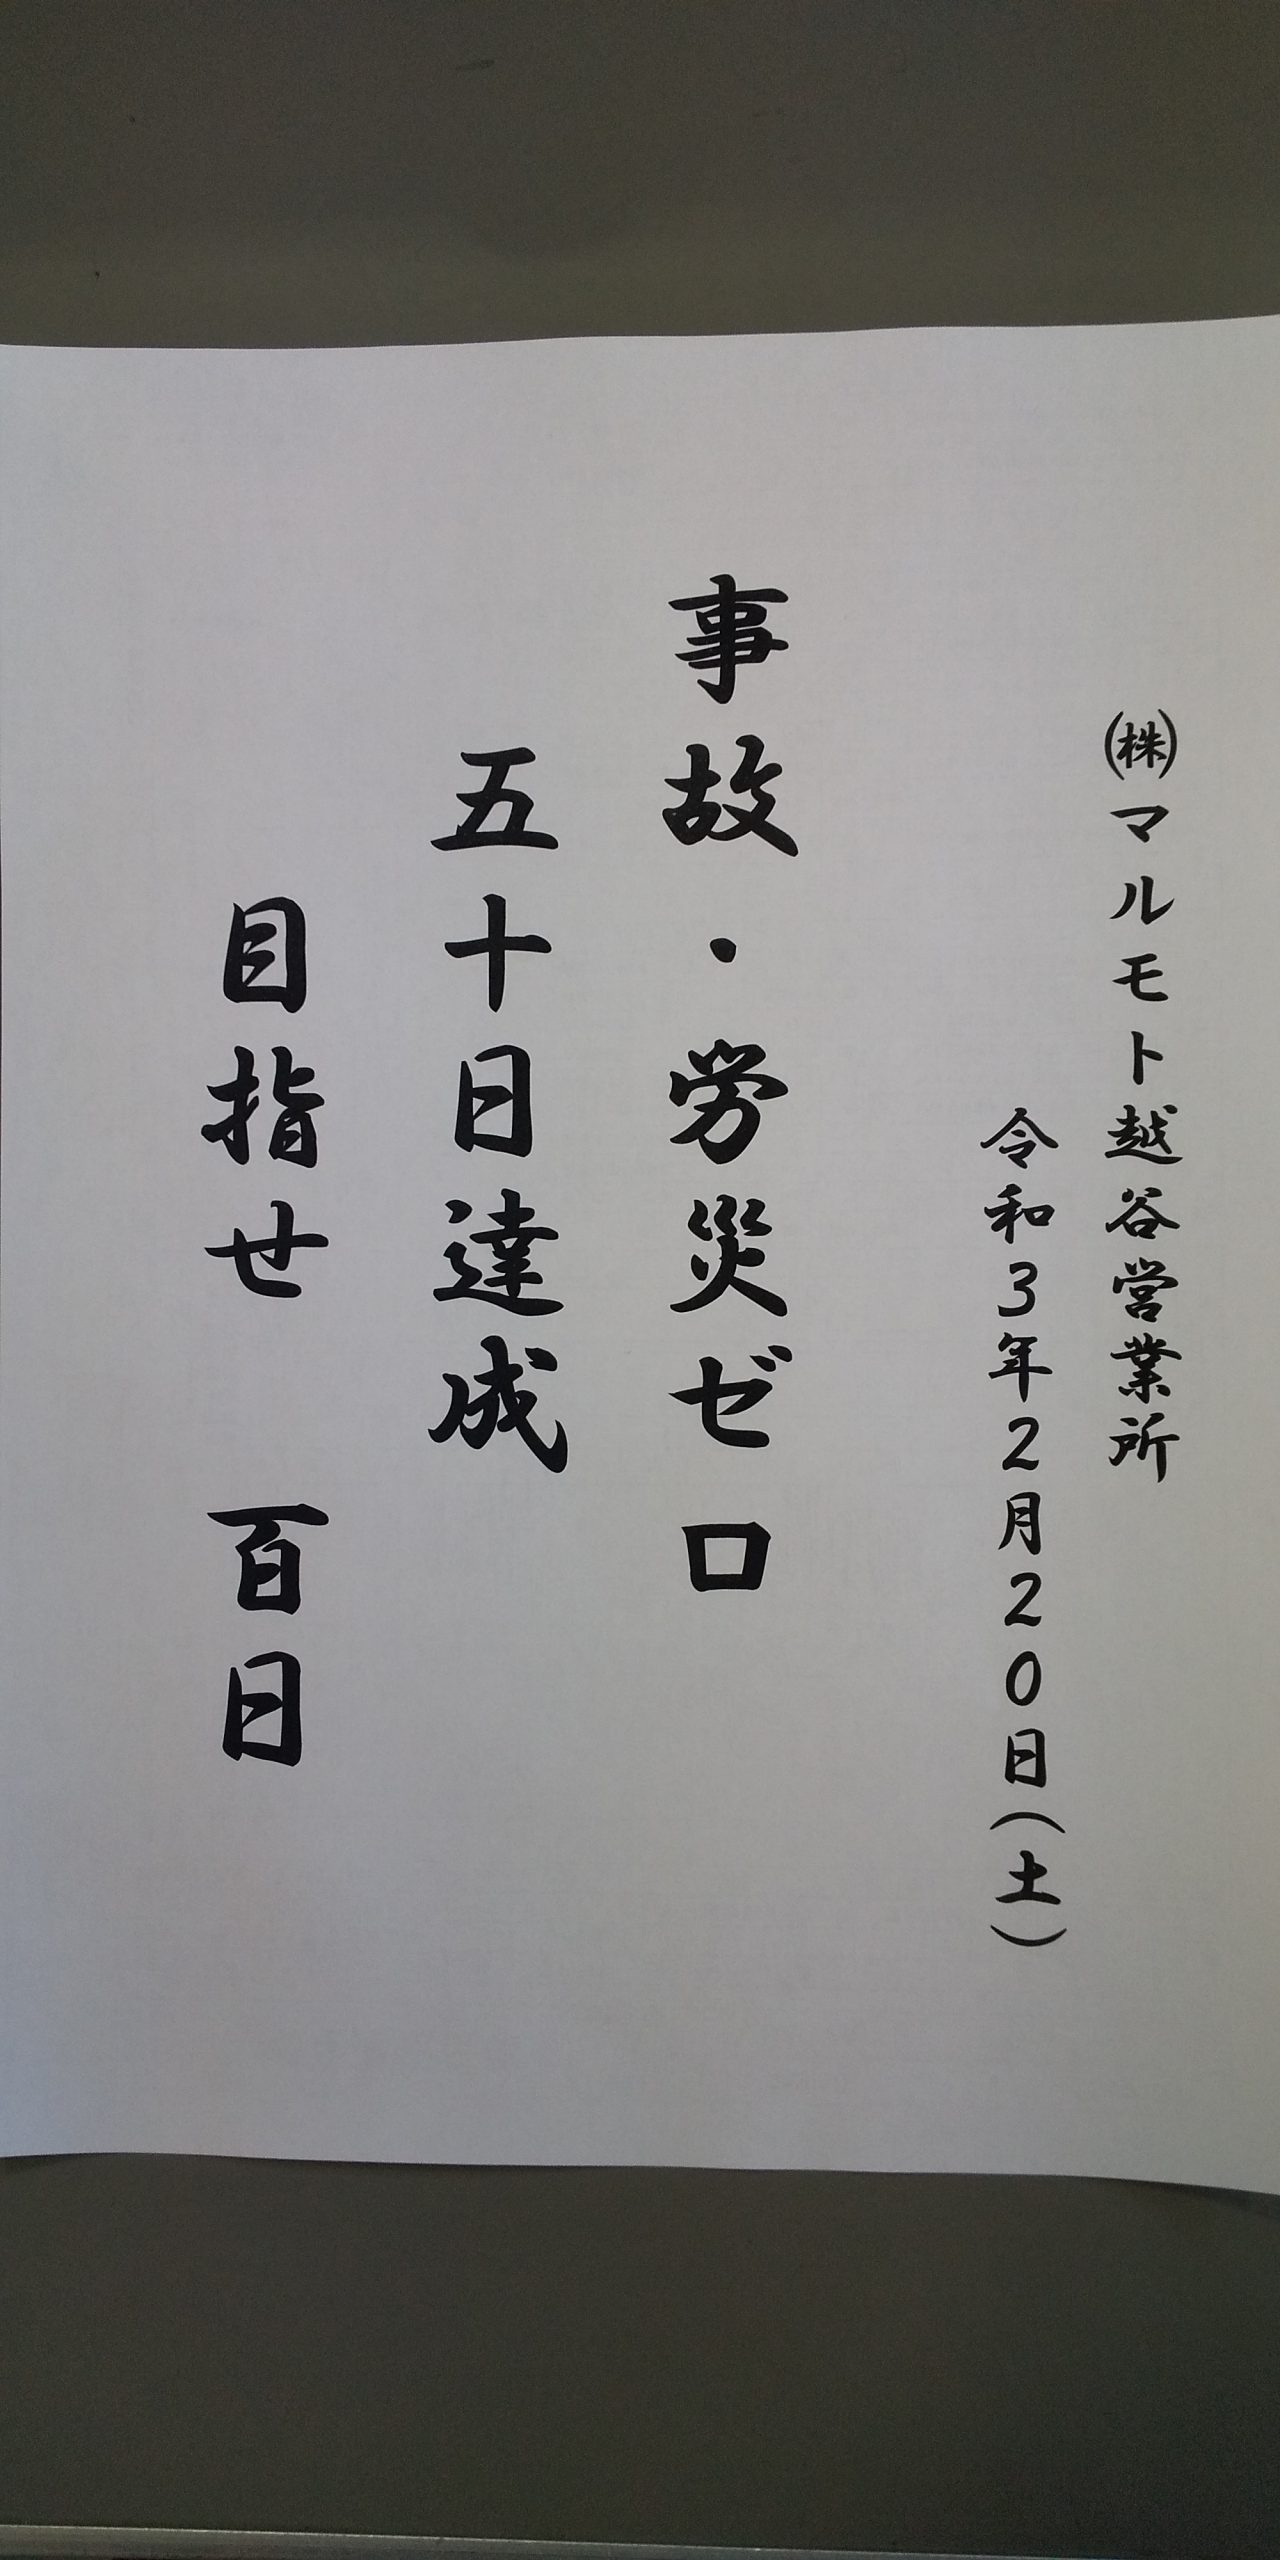 ㈱マルモト越谷営業所
令和3年2月20日(土)
事故・労災ゼロ
五十日達成
目指せ 百日